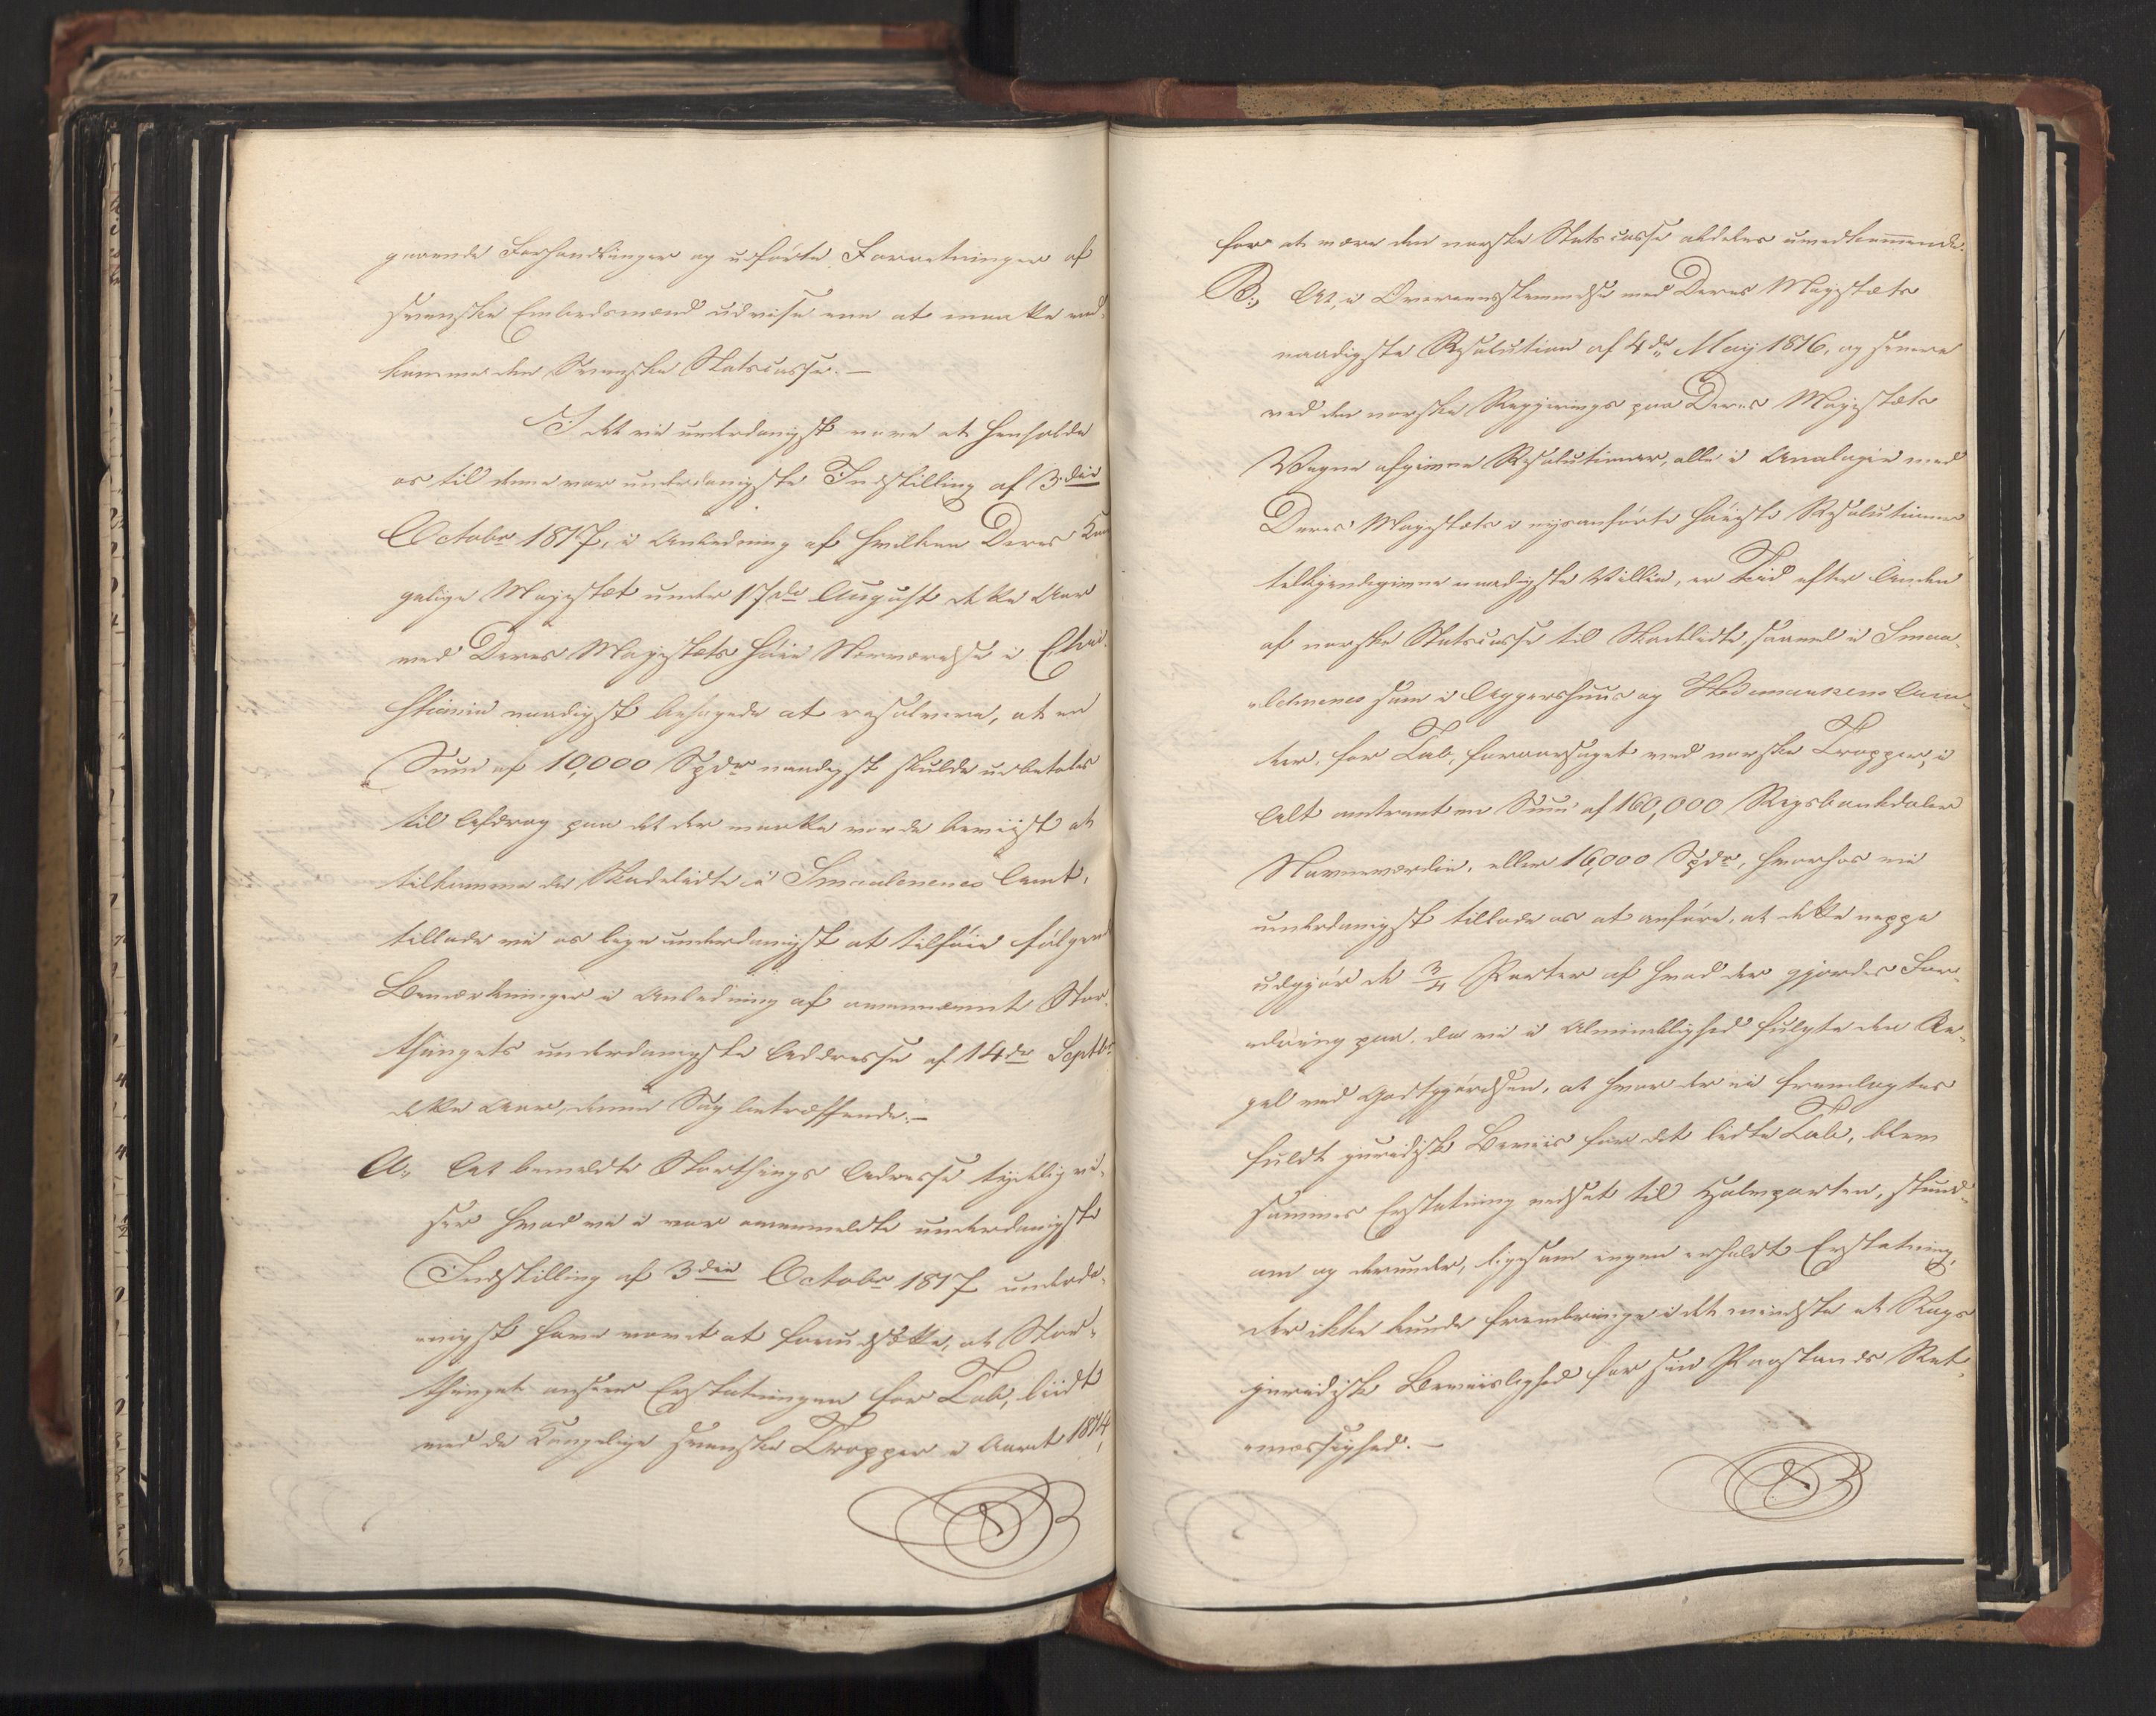 gaaende Forhandlinger og udførte Forretninger af
svenske Embedsmænd udvise ene at maatte ved-
komme den Svenske Statscasse. —
I det vi underdanigst vove at henholde
os till denne vor underdanigste Indstilling af 3die
Octobr 1817, i Anledning af hvilken Deres Kon
gelige Majestæt under 17de August dette Aar
med Deres Majestæts høie Nærværelse i Chri-
stiania naadigst behagede at resolvere, at en
Sum af 10,000 Spdr naadigst skulde udbetales
til Afdrag paa det der maatte vorde beviist at
tilkomme de Skadelidte i Smaalenenes Amt,
tillade vi os lige underdanigst at tilføie følgend
Bemærkninger i Anledning af ovennævnte Stor-
thingets underdanigste Addresse af 14de Septbr
dette Aar, denne Sag betræffende. —
A., At bemeldte Storthings Adresse tydelig vi-
ser hvad vi i vor ovenmeldte underdanigste
Indstilling af 3die Octobr 1817 underda-
nigst have vovet at forudsætte, at Stor-
thinget anseer Erstatningen for Tab, liidt
ved de Kongelige svenske Tropper i Aaret 1814,
for at være den norske Statscasse aldeles uvedkommende.
B., At, i Overeensstemmelse med Deres Majestæts
naadigste Resolution af 4de May 1816, og senere
ved den norske Regjerings paa Deres Majestæts
Vegne afgivne Resolutioner, alle i Analogie med
Deres Majestæts i nysanførte høieste Resolutioner
tilkjendegivne naadigste Villie, er Tid efter Anden
af norske Statscasse til Skadelidte, saavel i Smaa-
lehnenes som i Aggershuus og Hedemarkens Am-
ter, for Tab, foraarsaget ved norske Tropper, i
Alt omtrent en Sum af 160,000 Rigsbankdaler
Navneværdie, eller 16,000 Spdr, hvorhos vi
underdanigst tillade os at anføre, at dette neppe
udgjør de 3/4 Parter af hvad der gjordes For-
dring paa, da vi i Almindelighed fulgte den Re-
gel ved Godtgjørelsen, at hvor der ei fremlagdes
fuldt juridisk Beviis for det lidte Tab, blev
sammes Erstatning nedsat til Halvparten, stund-
om og derunder, ligesom ingen erholdt Erstatning,
der ikke kunde frembringe i det mindste et Slags
juridisk Beviislighed for sin Paastands Ret-
mæssighed. —